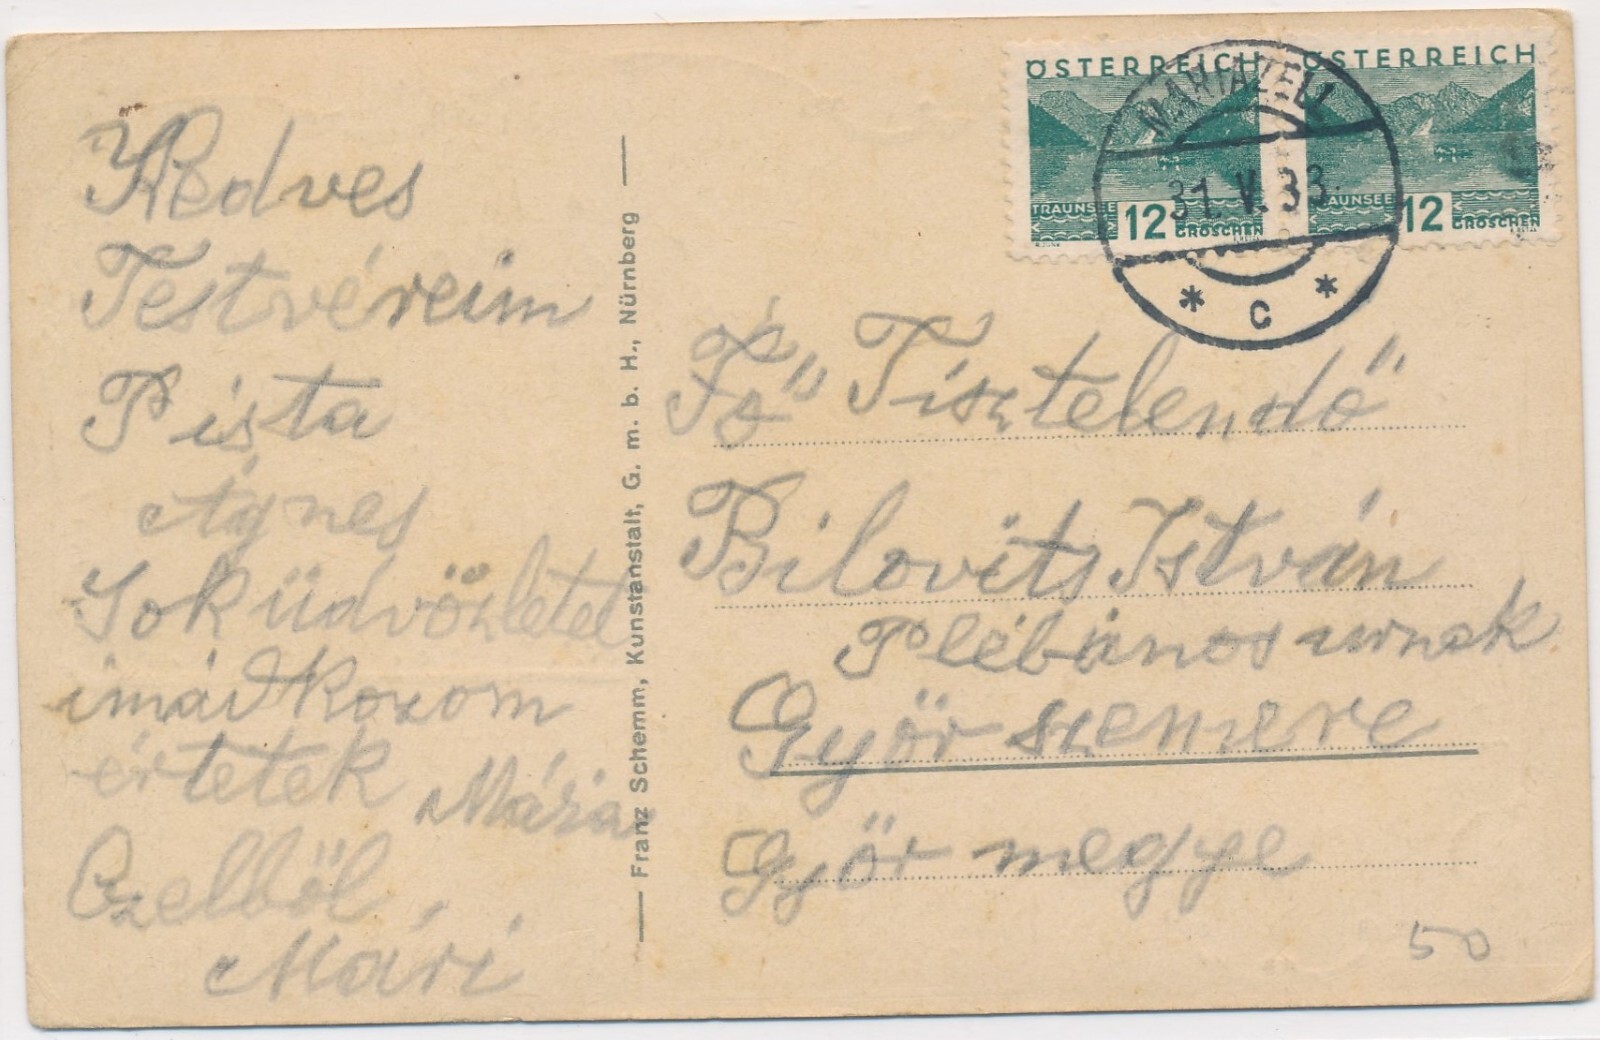 Kedves
Testvéreim
Pista
Ágnes
Sok üdvözletel
imádkozom
értetek Mária
Czelből,
Mári
Franz Schemm, Kunstanstalt, G. m. b. H., Nürnberg
ÖSTERREICH
TRAUNSEE 12 GROSCHEN
ÖSTERREICH
TRAUNSEE 12 GROSCHEN
MARIAZELL
31. V. 33.
* C *
Tisztelendő
Bilovits István
Plébános urnak
Győr szemere
Győr megye
50